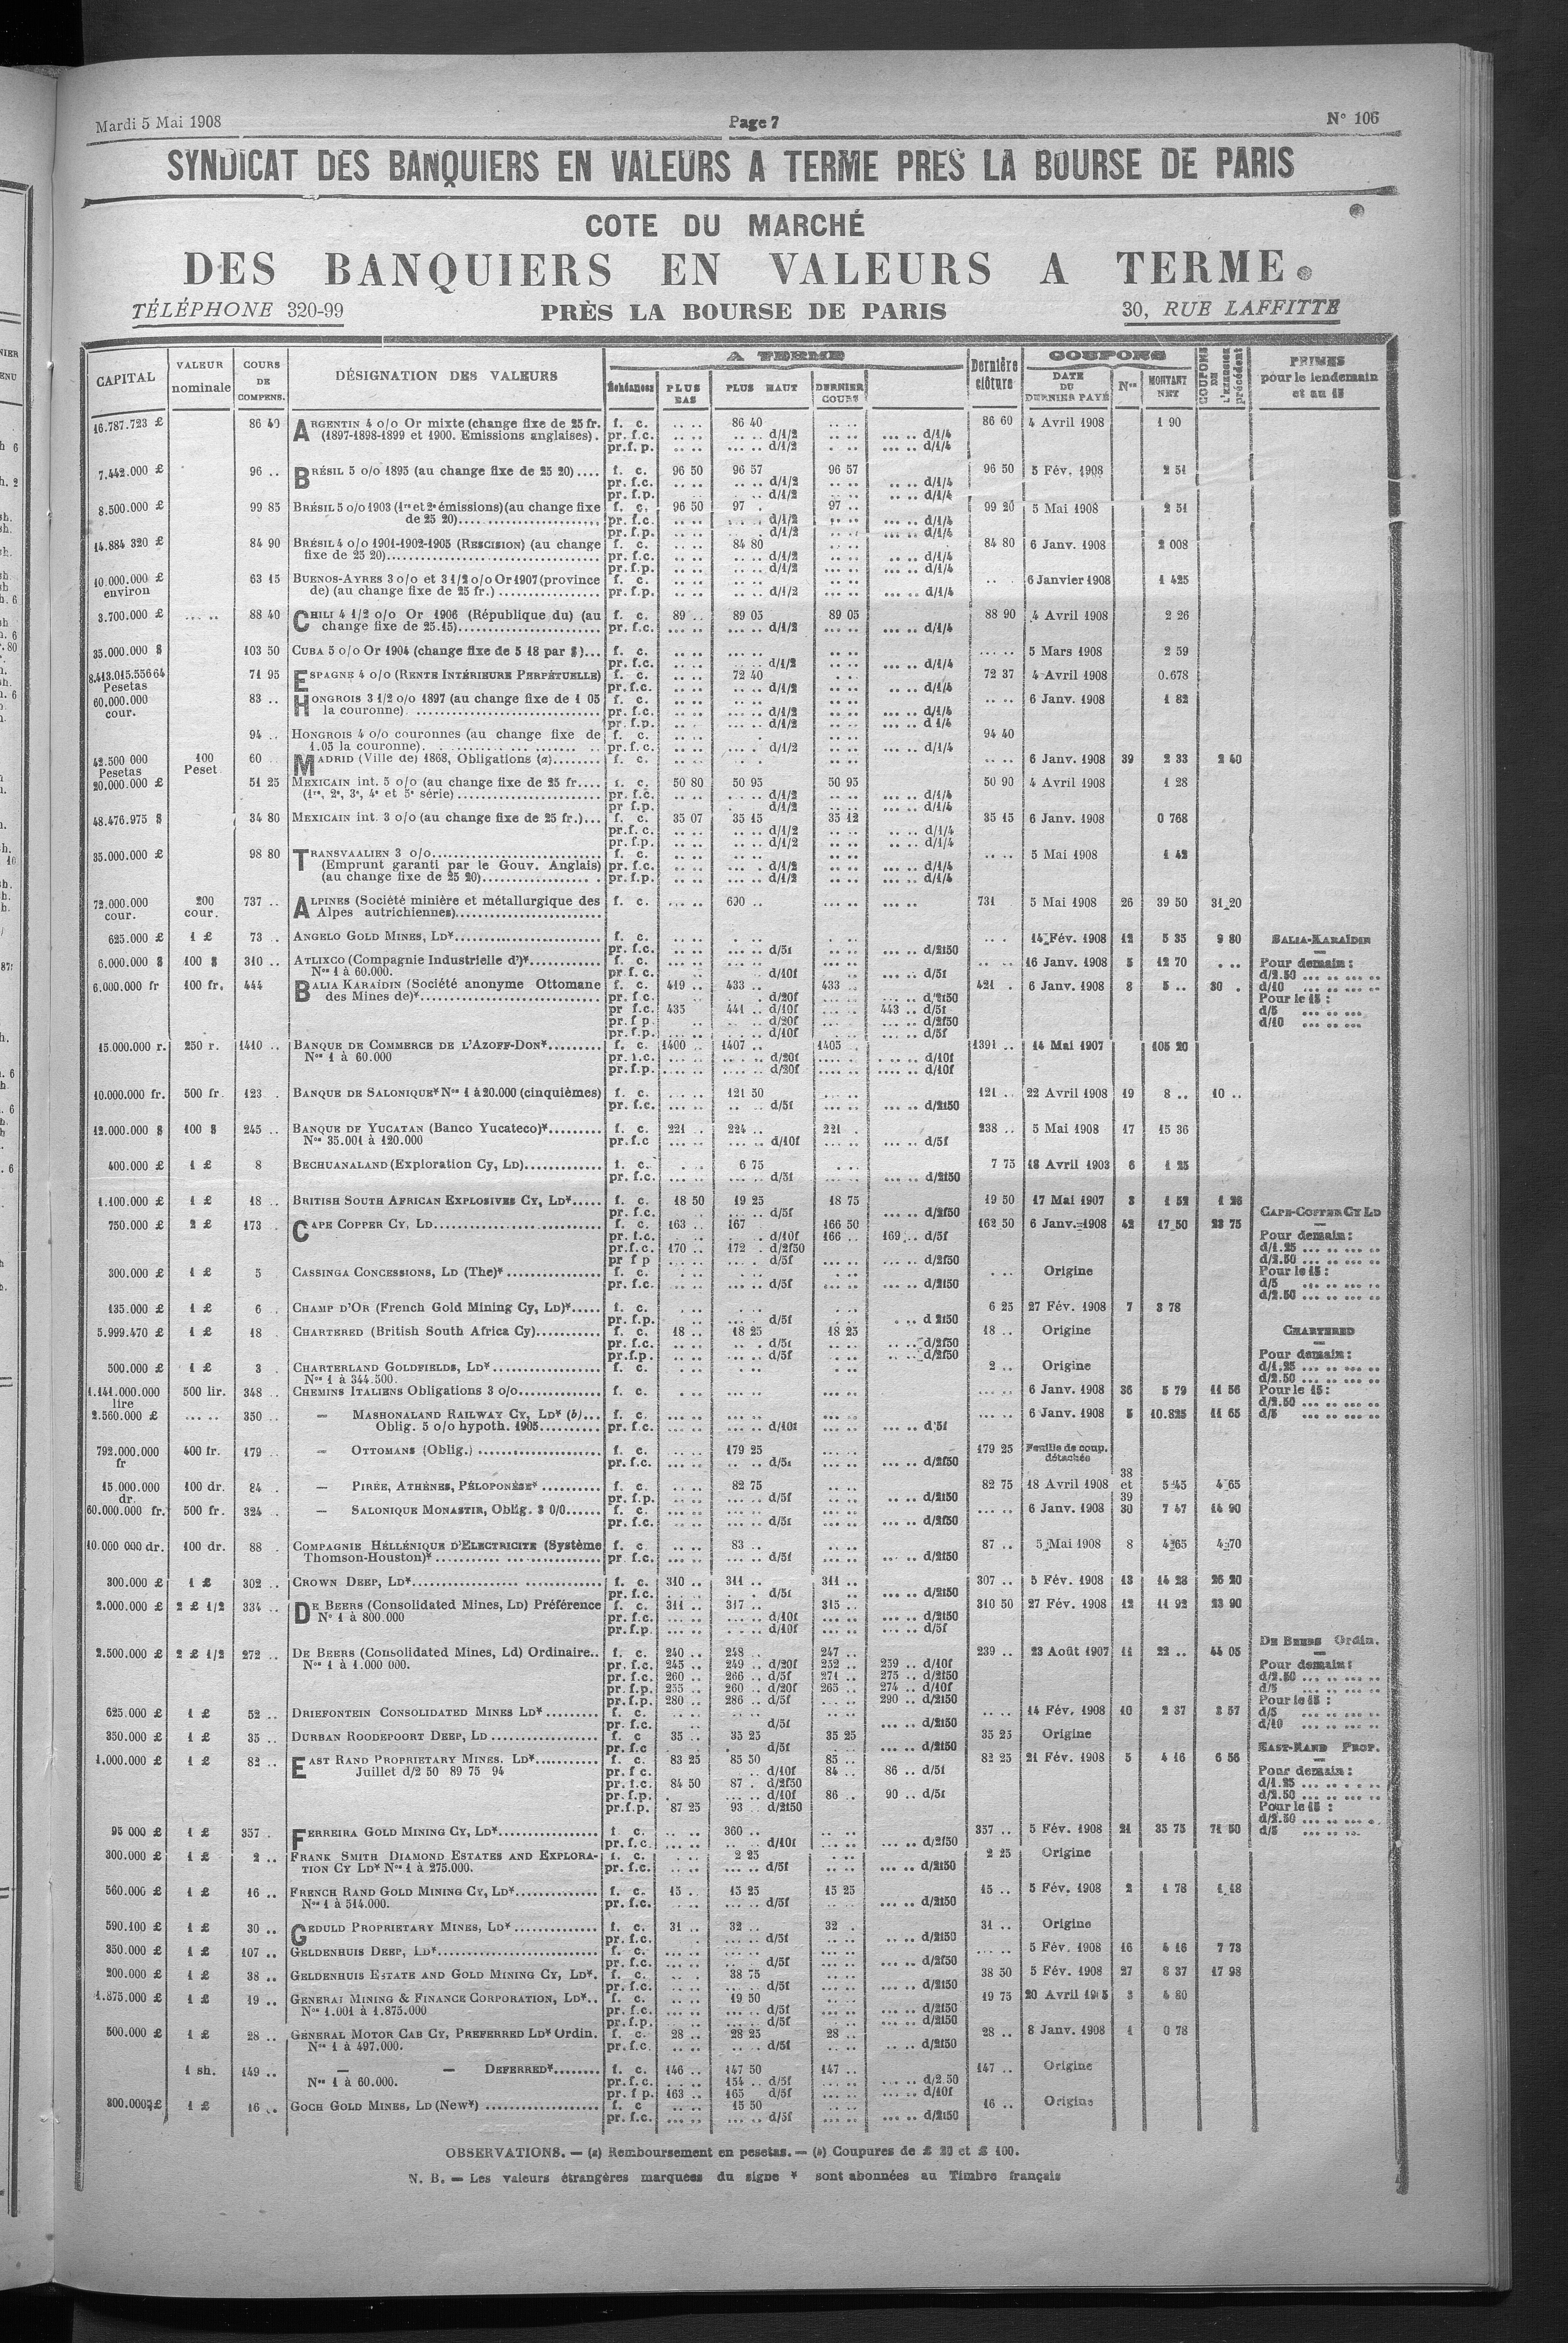 Mardi 5 Mai 1908 Page 7 N° 106
SYNDICAT DES BANQUIERS EN VALEURS A TERME PRES LA BOURSE DE PARIS
COTE DU MARCHÉ
DES BANQUIERS EN VALEURS A TERME
TÉLÉPHONE 320-99 PRÈS LA BOURSE DE PARIS 30, RUE LAFFITTE
CAPITAL VALEUR nominale COURS DE COMPENS. DÉSIGNATION DES VALEURS A TERME Échéances PLUS BAS PLUS HAUT DERNIER COURS Dernière clôture COUPONS DATE DU DERNIER PAYÉ Nos MONTANT NET COUPONS DE L'EXERCICE précédent PRIMES pour le lendemain et au 15
16.787.723 £ 86 40 ARGENTIN 4 o/o Or mixte (change fixe de 25 fr. f. c. .. .. 86 40 .. .. 86 60 4 Avril 1908 1 90
(1897-1898-1899 et 1900. Emissions anglaises). pr. f.c. .. .. .... .. d/1/2 .. .. ... .. d/1/4
pr.f. p. .. .. .... .. d/1/2 . .. ... .. d/1/4
7.442.000 £ 96 .. BRÉSIL 5 o/o 1895 (au change fixe de 25 20).... f. c. 96 50 96 57 96 57 96 50 5 Fév. 1908 2 51
pr. f.c. .. .. .. .. d/1/2 .. .. ... .. d/1/4
pr. f.p. .. .. .. .. d/1/2 .. .. ... .. d/1/4
8.500.000 £ 99 85 BRÉSIL 5 o/o 1903 (1re et 2e émissions)(au change fixe f. c. 96 50 97 . 97 .. 99 20 5 Mai 1908 2 51
de 25 20)........ pr. f.c. .. .. d/1/2 .. .. ... .. d/1/4
pr. f.p. .. .. d/1/2 .. .. ... .. d/1/4
14.884 320 £ 84 90 BRÉSIL 4 o/o 1901-1902-1905 (RESCISION) (au change f. c. .. .. 84 80 84 80 6 Janv. 1908 2 008
fixe de 25 20)........ pr. f.c. .. .. d/1/2 .. .. ... .. d/1/4
pr. f.p. .. .. d/1/2 .. .. ... .. d/1/4
10.000.000 £ environ 63 15 BUENOS-AYRES 3 o/o et 3 1/2 o/o Or 1907 (province f. c. .. .. .. .. 6 Janvier 1908 1 425
de) (au change fixe de 25 fr.) ........ pr. f.p. .. .. d/1/2 .. .. ... .. d/1/4
3.700.000 £ .... .. 88 40 CHILI 4 1/2 o/o Or 1906 (République du) (au f. c. 89 .. 89 05 89 05 88 90 4 Avril 1908 2 26
change fixe de 25.15)........ pr. f.c. ... .. .... .. d/1/2 .. .. ... .. d/1/4
35.000.000 $ 103 50 CUBA 5 o/o Or 1904 (change fixe de 5 18 par $)... f. c. .. .. .. .. .. .. ... .. 5 Mars 1908 2 59
pr. f.c. .. .. d/1/2 .. .. ... .. d/1/4
8.413.015.556 64 Pesetas 71 95 ESPAGNE 4 o/o (RENTE INTÉRIEURE PERPÉTUELLE) f. c. .. .. 72 40 . .. 72 37 4 Avril 1908 0.678
pr. f.c. .. .. d/1/2 .. .. ... .. d/1/4
60.000.000 cour. 83 .. HONGROIS 3 1/2 o/o 1897 (au change fixe de 1 05 f. c. .. .. .. .. .. .. 6 Janv. 1908 1 82
la couronne) ........ pr. f.c. .. .. d/1/2 .. .. ... .. d/1/4
pr. f.p. .. .. d/1/2 .. .. ... .. d 1/4
94 .. HONGROIS 4 o/o couronnes (au change fixe de f. c. .. .. .. .. 94 40
1.05 la couronne). ........ pr. f.c. .. .. d/1/2 .. .. ... .. d/1/4
42.500 000 Pesetas 100 Peset 60 .. MADRID (Ville de) 1868, Obligations (a)........ f. c. .. .. .. .. 6 Janv. 1908 39 2 33 2 40
20.000.000 £ 51 25 MEXICAIN int. 5 o/o (au change fixe de 25 fr.... f. c. 50 80 50 95 50 95 50 90 4 Avril 1908 1 28
(1re, 2e, 3e, 4e et 5e série) ........ pr. f.c. .. .. d/1/2 ... .. d/1/4
pr f.p. . d/1/2 .. .. ... .. d/1/4
48.476.975 $ 34 80 MEXICAIN int. 3 o/o (au change fixe de 25 fr.)... f. c. 35 07 35 15 35 12 35 15 6 Janv. 1908 0 768
pr.f. c. .. .. d/1/2 .. .. ... .. d/1/4
pr. f.p. .. .. d/1/2 .. .. ... .. d/1/4
35.000.000 £ 98 80 TRANSVAALIEN 3 o/o........ f. c. .. .. 5 Mai 1908 1 42
(Emprunt garanti par le Gouv. Anglais) pr. f.c. .. .. d/1/2 .. .. ... .. d/1/4
(au change fixe de 25 20)........ pr. f.p. .. .. d/1/2 .. .. ... .. d/1/4
72.000.000 cour. 200 cour. 737 .. ALPINES (Société minière et métallurgique des f. c. ... .. 690 .. ... .. 731 5 Mai 1908 26 39 50 31 20
Alpes autrichiennes)........
625.000 £ 1 £ 73 .. ANGELO GOLD MINES, LD*........ f. c. .. .. 14 Fév. 1908 12 5 35 9 80 BALIA-KARAÏDIN
pr. f.c. ... .. d/5f ... .. d/2f50
6.000.000 $ 100 $ 310 .. ATLIXCO (Compagnie Industrielle d')*........ f. c. ... .. 16 Janv. 1908 5 12 70 . .. Pour demain :
Nos 1 à 60.000. pr. f.c. ... .. d/10f ... .. d/5f d/2.50 ... .. ... ..
6.000.000 fr 100 fr. 444 BALIA KARAÏDIN (Société anonyme Ottomane f. c. 419 .. 433 .. 433 .. 421 . 6 Janv. 1908 8 5 .. 30 . d/10 ... .. ... ..
des Mines de)*........ pr. f.c. . d/20f ... .. d/2f50 Pour le 15 :
pr f.c. 435 441 .. d/10f 443 .. d/5f d/5 ... .. ...
pr. f p. .. .. d/20f ... .. d/2f50 d/10 ... .. ...
pr. f.p. .. .. d/10f ... .. d/5f
15.000.000 r. 250 r. 1410 .. BANQUE DE COMMERCE DE L'AZOFF-DON*........ f. c. 1400 .. 1407 .. 1405 .. 1391 .. 14 Mai 1907 105 20
Nos 1 à 60.000 pr. f.c. .... .. d/20f .... .. d/10f
pr. f.p. .... .. d/20f .... .. d/10f
10.000.000 fr. 500 fr. 123 . BANQUE DE SALONIQUE* Nos 1 à 20.000 (cinquièmes) f. c. 121 50 121 .. 22 Avril 1908 19 8 .. 10 ..
pr. f.c. ... .. d/5f ... .. d/2f50
12.000.000 $ 100 $ 245 .. BANQUE DE YUCATAN (Banco Yucateco)*........ f. c. 221 .. 224 .. 221 . 238 .. 5 Mai 1908 17 15 36
Nos 35.001 à 120.000 pr. f.c ... .. d/10f ... .. d/5f
400.000 £ 1 £ 8 BECHUANALAND (Exploration Cy, LD)........ f. c. 6 75 7 75 18 Avril 1903 6 1 25
pr. f.c. ... .. d/5f ... .. d/2f50
1.100.000 £ 1 £ 18 .. BRITISH SOUTH AFRICAN EXPLOSIVES CY, LD*..... f. c. 18 50 19 25 18 75 19 50 17 Mai 1907 3 1 52 1 26
pr. f.c. .. .. d/5f ... .. d/2f50 CAPE-COPPER CY LD
750.000 £ 2 £ 173 . CAPE COPPER CY, LD........ f. c. 163 .. 167 166 50 162 50 6 Janv. 1908 42 17 50 23 75
pr. f.c. . d/10f 166 .. 169 .. d/5f Pour demain :
pr.f.c. 170 .. 172 . d/2f50 d/1.25 ... .. ... ..
pr f p .. .. d/5f ... .. d/2f50 d/2.50 ... .. ... ..
300.000 £ 1 £ 5 CASSINGA CONCESSIONS, LD (The)* ........ f. c. Origine Pour le 15 :
pr. f.c. ... .. d/5f ... .. d/2f50 d/5 ... .. ... ..
d/2.50 ... .. ... ..
135.000 £ 1 £ 6 . CHAMP D'OR (French Gold Mining Cy, LD)*..... f. c. 6 25 27 Fév. 1908 7 3 78
pr. f.p. d/5f . .. d 2f50
5.999.470 £ 1 £ 18 . CHARTERED (British South Africa Cy)........ f. c. 18 .. 18 25 18 25 18 .. Origine CHARTERED
pr. f.c. .. . d/5f .. .. d/2f50
pr.f.p. .. .. d/5f .. .. d/2f50 Pour demain :
500.000 £ 1 £ 3 . CHARTERLAND GOLDFIELDS, LD*........ f. c. 2 .. Origine d/1.25 ... .. ... ..
Nos 1 à 344.500. d/2.50 ... .. ... ..
1.141.000.000 lire 500 lir. 348 .. CHEMINS ITALIENS Obligations 3 o/o........ f. c. ... .. 6 Janv. 1908 36 5 79 11 56 Pour le 15 :
d/2.50 ... .. ... ..
2.560.000 £ ... .. 350 .. — MASHONALAND RAILWAY CY, LD* (b)... f. c. ... .. 6 Janv. 1908 5 10.825 11 65 d/5 ... .. ... ..
Oblig. 5 o/o hypoth. 1905........ pr. f.c. ... .. d/10f ... .. d/5f
792.000.000 fr 400 fr. 179 .. — OTTOMANS (Oblig.) ........ f. c. 179 25 179 25 Feuille de coup. détachée
pr. f.c. ... .. d/5f ... .. d/2f50
15.000.000 dr. 100 dr. 84 . — PIRÉE, ATHÈNES, PÉLOPONÈSE* ........ f. c. 82 75 82 75 18 Avril 1908 38 et 39 5 45 4 65
pr. f.p. ... .. d/5f .. .. d/2f50
60.000.000 fr. 500 fr. 324 .. — SALONIQUE MONASTIR, Oblig. 3 0/0...... f. c. ... .. 6 Janv. 1908 30 7 47 14 90
pr. f.c. ... .. d/5f ... .. d/2f50
10.000 000 dr. 100 dr. 88 . COMPAGNIE HÉLLÉNIQUE D'ELECTRICITE (Système f. c 83 .. 87 .. 5 Mai 1908 8 4 65 4 70
Thomson-Houston)* ........ pr. f.c. ... .. d/5f ... .. d/2f50
300.000 £ 1 £ 302 .. CROWN DEEP, LD*........ f. c. 310 .. 311 .. 311 .. 307 .. 5 Fév. 1908 13 14 28 26 20
pr. f.c. . d/5f ... .. d/2f50
2.000.000 £ 2 £ 1/2 334 .. DE BEERS (Consolidated Mines, LD) Préférence f. c. 311 .. 317 .. 315 .. 310 50 27 Fév. 1908 12 11 92 23 90
N° 1 à 800.000 pr. f.c. ... .. d/10f ... .. d/2f50
pr. f.p. ... .. d/10f ... .. d/5f
DE BEERS Ordin.
2.500.000 £ 2 £ 1/2 272 .. DE BEERS (Consolidated Mines, Ld) Ordinaire.. f. c. 240 .. 248 .. 247 .. 239 .. 23 Août 1907 11 22 .. 44 05
Nos 1 à 1.000 000. pr. f.c. 245 .. 249 .. d/20f 252 .. 259 .. d/10f Pour demain :
pr. f.c. 260 .. 266 .. d/5f 271 .. 275 .. d/2f50 d/2.50 ... .. ... ..
pr. f.p. 255 .. 260 .. d/20f 265 .. 274 .. d/10f d/5 ... .. ... ..
pr. f.p. 280 .. 286 .. d/5f ... .. 290 .. d/2f50 Pour le 15 :
625.000 £ 1 £ 52 .. DRIEFONTEIN CONSOLIDATED MINES LD*........ f. c. .. .. 14 Fév. 1908 10 2 37 3 57 d/5 ... .. ... ..
pr. f.c. d/5f ... .. d/2f50 d/10 ... .. ... ..
350.000 £ 1 £ 35 .. DURBAN ROODEPOORT DEEP, LD ........ f. c 35 .. 35 25 35 25 35 25 Origine
pr. f.c . d/5f ... .. d/2f50 EAST-RAND PROP.
1.000.000 £ 1 £ 82 .. EAST RAND PROPRIETARY MINES, LD*........ f. c. 83 25 85 50 85 .. 82 25 21 Fév. 1908 5 4 16 6 56
Juillet d/2 50 89 75 94 pr. f c. .. .. d/10f 84 .. 86 .. d/5f Pour demain :
pr. f.c. 84 50 87 . d/2f50 d/1.25 ... .. . .
pr. f.p. ... .. d/10f 86 .. 90 .. d/5f d/2.50 ... .. ... ..
pr.f.p. 87 25 93 .. d/2f50 Pour le 15 :
d/2.50 ... .. ... .
95 000 £ 1 £ 357 . FERREIRA GOLD MINING CY, LD*........ f. c. .. .. 360 .. 357 .. 5 Fév. 1908 21 35 75 71 50 d/5 ... .. ..
pr. f.c. ... .. d/10f ... .. d/2f50
300.000 £ 1 £ 2 .. FRANK SMITH DIAMOND ESTATES AND EXPLORA- f. c. 2 25 2 25 Origine
TION CY LD* Nos 1 à 275.000. pr. f.c. ... .. d/5f ... .. d/2f50
560.000 £ 1 £ 16 .. FRENCH RAND GOLD MINING CY, LD*........ f. c. 15 .. 15 25 15 25 15 .. 5 Fév. 1908 2 1 78 1 18
Nos 1 à 514.000. pr. f.c. ... .. d/5f ... .. d/2f50
590.100 £ 1 £ 30 .. GEDULD PROPRIETARY MINES, LD* ........ f. c. 31 .. 32 .. 32 . 31 .. Origine
pr. f.c. ... .. d/5f ... .. d/2f50
350.000 £ 1 £ 107 .. GELDENHUIS DEEP, LD*........ f. c. ... .. 5 Fév. 1908 16 4 16 7 73
pr. f.c. ... .. d/5f ... .. d/2f50
200.000 £ 1 £ 38 .. GELDENHUIS ESTATE AND GOLD MINING CY, LD*. f. c. 38 75 38 50 5 Fév. 1908 27 8 37 17 98
pr. f.c. ... .. d/5f ... .. d/2f50
1.875.000 £ 1 £ 19 .. GENERAL MINING & FINANCE CORPORATION, LD*.. f. c. 19 50 19 75 20 Avril 3 4 80
Nos 1.001 à 1.875.000 pr. f.c. ... .. d/5f ... .. d/2f50
pr. f.p. ... .. d/5f ... .. d/2f50
500.000 £ 1 £ 28 .. GENERAL MOTOR CAB CY, PREFERRED LD* Ordin. f. c. 28 .. 28 25 28 .. 28 .. 8 Janv. 1908 1 0 78
Nos 1 à 497.000. pr. f.c. .. .. d/5f .. .. d/2f50
1 sh. 149 .. — — DEFERRED*........ f. c. 146 .. 147 50 147 .. 147 .. Origine
Nos 1 à 60.000. pr. f.c. .. .. 154 .. d/5f ... .. d/2.50
pr. f p. 163 .. 165 d/5f ... .. d/10f
300.000 £ 1 £ 16 .. GOCH GOLD MINES, LD (New*) ........ f. c 15 50 16 .. Origine
pr. f.c. ... .. d/5f ... .. d/2f50
OBSERVATIONS. — (a) Remboursement en pesetas. — (b) Coupures de £ 20 et £ 100.
N. B. — Les valeurs étrangères marquees du signe * sont abonnées au Timbre français